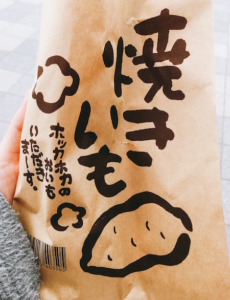 焼き
いも
ホッカホカの
おいも
いただき
まーす。